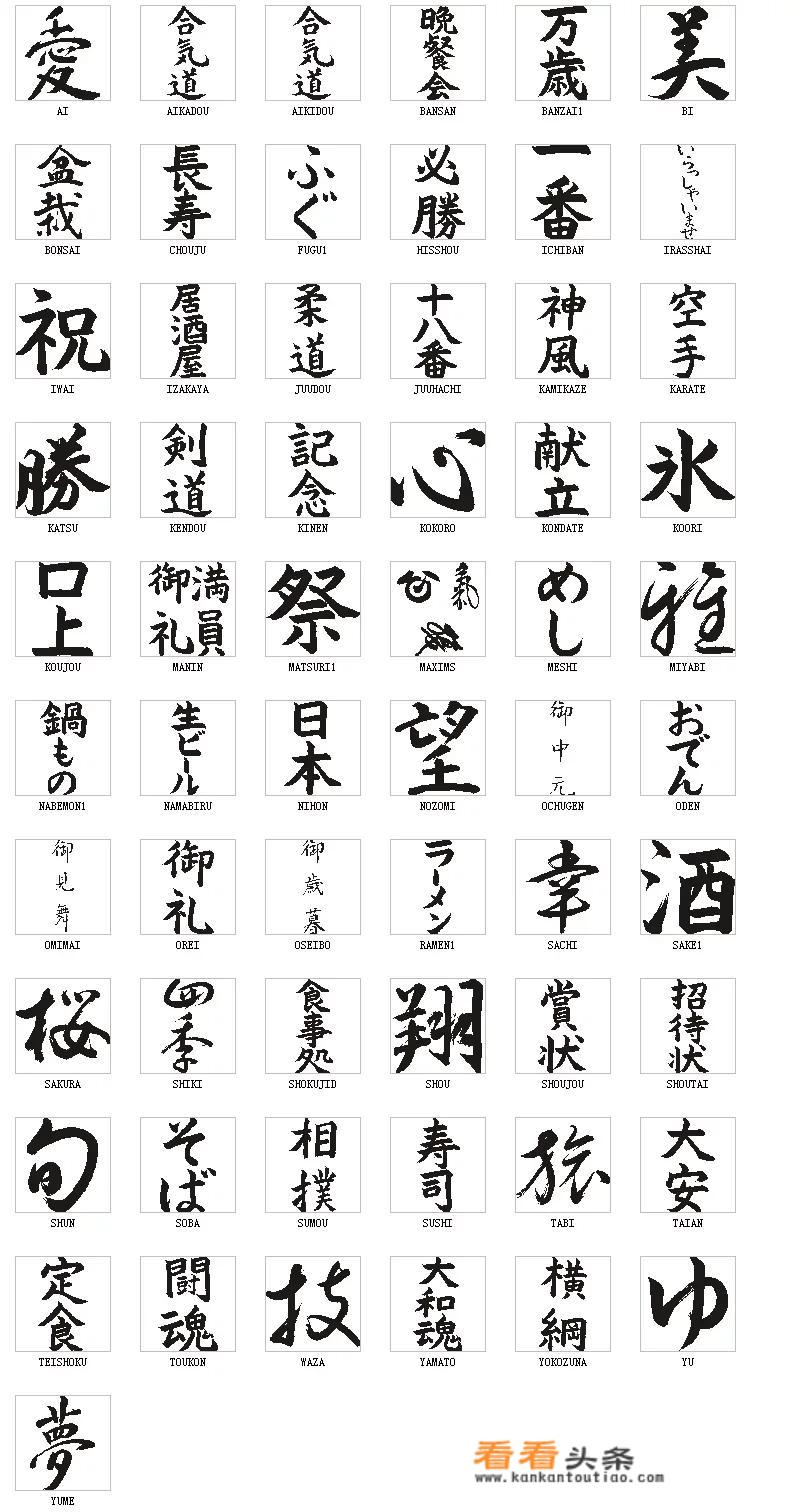 愛
AI
合気道
AIKADOU
合気道
AIKIDOU
晩餐会
BANSAN
万歳
BANZAI1
美
BI
盆栽
BONSAI
長寿
CHOUJU
ふぐ
FUGU1
必勝
HISSHOU
一番
ICHIBAN
いらっしゃいませ
IRASSHAI
祝
IWAI
居酒屋
IZAKAYA
柔道
JUUDOU
十八番
JUUHACHI
神風
KAMIKAZE
空手
KARATE
勝
KATSU
剣道
KENDOU
記念
KINEN
心
KOKORO
献立
KONDATE
氷
KOORI
口上
KOUJOU
満員
御礼
MANIN
祭
MATSURI1
MAXIMS
めし
MESHI
雅
MIYABI
鍋もの
NABEMON1
生ビール
NAMABIRU
日本
NIHON
望
NOZOMI
御中元
OCHUGEN
おでん
ODEN
御見舞
OMIMAI
御礼
OREI
御歳暮
OSEIBO
ラーメン
RAMEN1
幸
SACHI
酒
SAKE1
桜
SAKURA
四季
SHIKI
食事処
SHOKUJID
翔
SHOU
賞状
SHOUJOU
招待状
SHOUTAI
旬
SHUN
そば
SOBA
相撲
SUMOU
寿司
SUSHI
旅
TABI
大安
TAIAN
定食
TEISHOKU
闘魂
TOUKON
技
WAZA
大和魂
YAMATO
横綱
YOKOZUNA
ゆ
YU
夢
YUME
看看头条
www.kankantoutiao.com